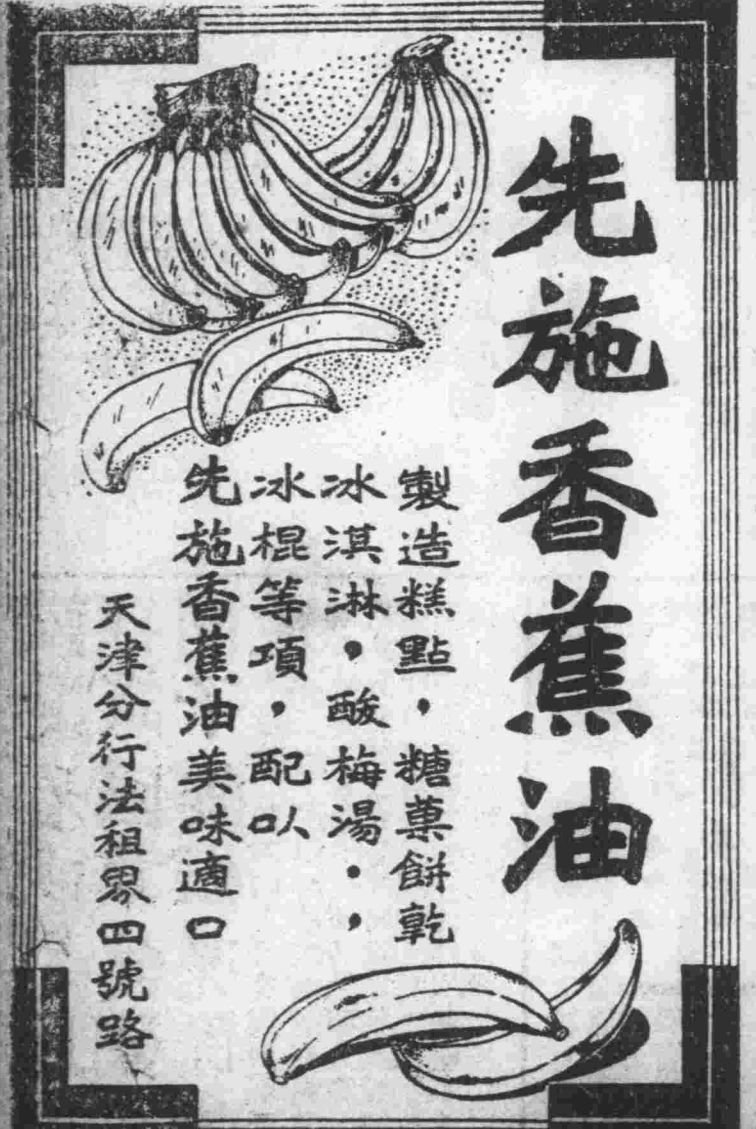 先施香蕉油
製造糕點，糖菓餅乾
冰淇淋，酸梅湯．，
冰棍等項，配㕥
先施香蕉油美味適口
天津分行法租界四號路